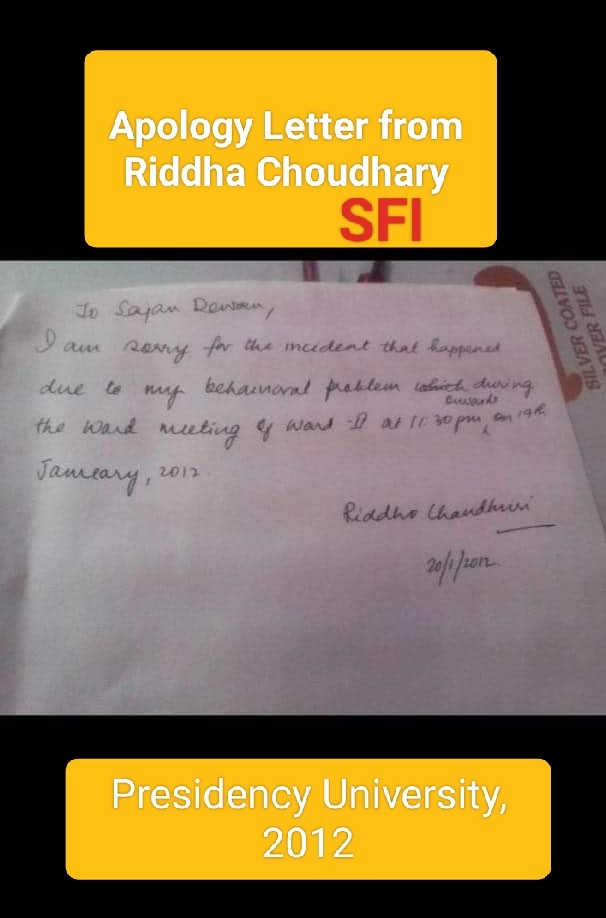 Apology Letter from
Riddha Choudhary
SFI
To Sajan Dewan,
I am sorry for the incident that happened
due to my behavioral problem which during
the Ward meeting of Ward - II at 11:30 pm onwards, on 19th
January, 2012.
Riddho Chaudhuri
20/1/2012.
SILVER COATED
COVER FILE
Presidency University,
2012